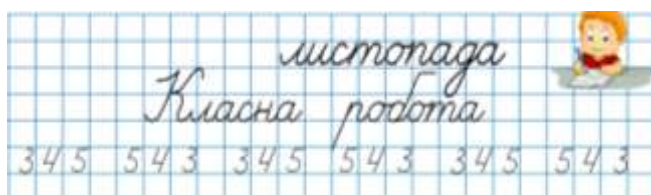 листопада
Класна робота
345 543 345 543 345 543